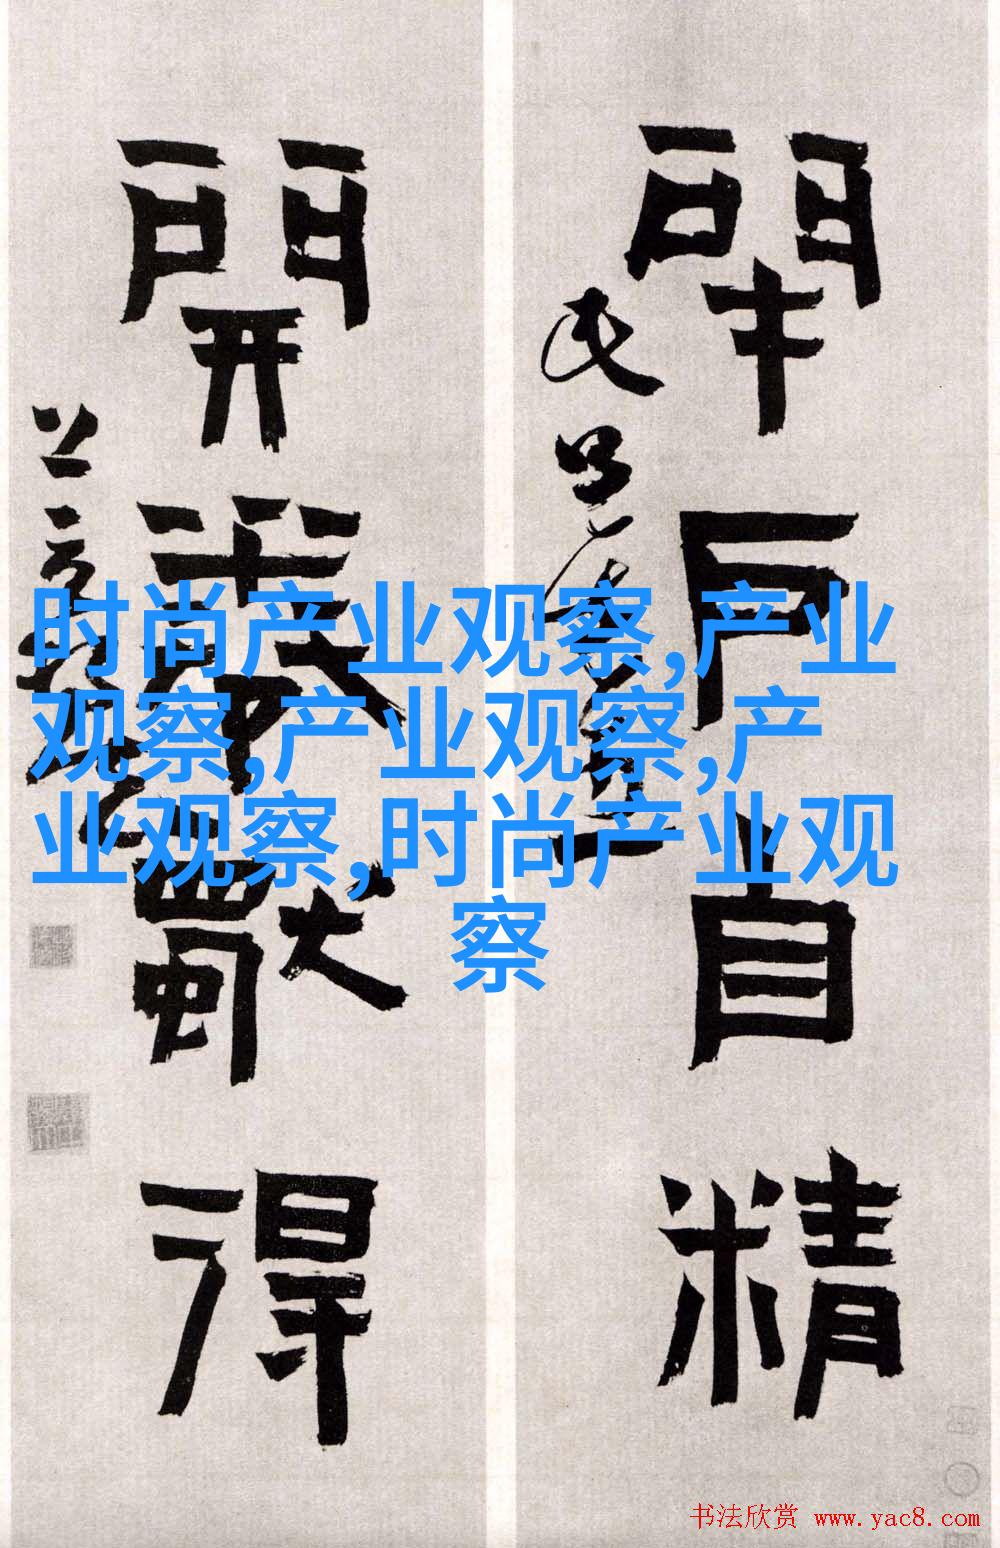 閉戶自精
開卷獨得
时尚产业观察,产业
观察,产业观察,产
业观察,时尚产业观
察
书法欣赏 www.yac8.com